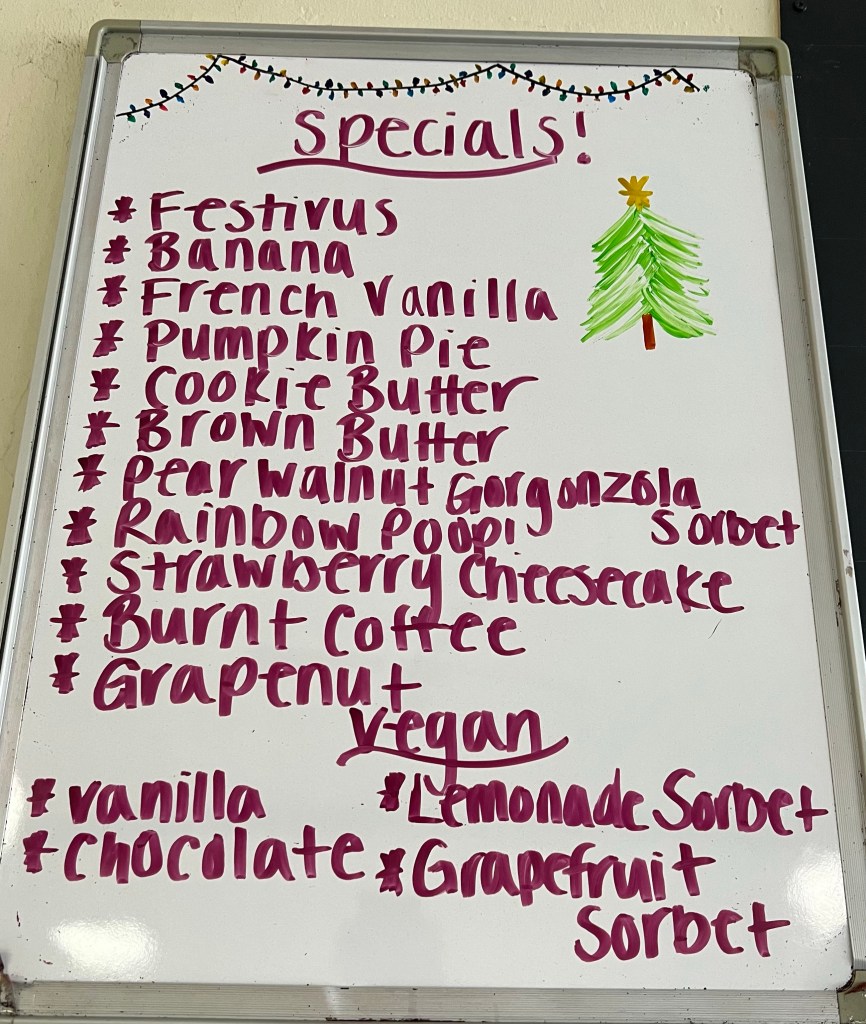 Specials!
* Festivus
* Banana
* French Vanilla
* Pumpkin Pie
* Cookie Butter
* Brown Butter
* Pear Walnut Gorgonzola
Sorbet
* Rainbow Poop!
* Strawberry Cheesecake
* Burnt Coffee
* Grapenut
Vegan
* Vanilla
* Chocolate
* Lemonade Sorbet
* Grapefruit
Sorbet